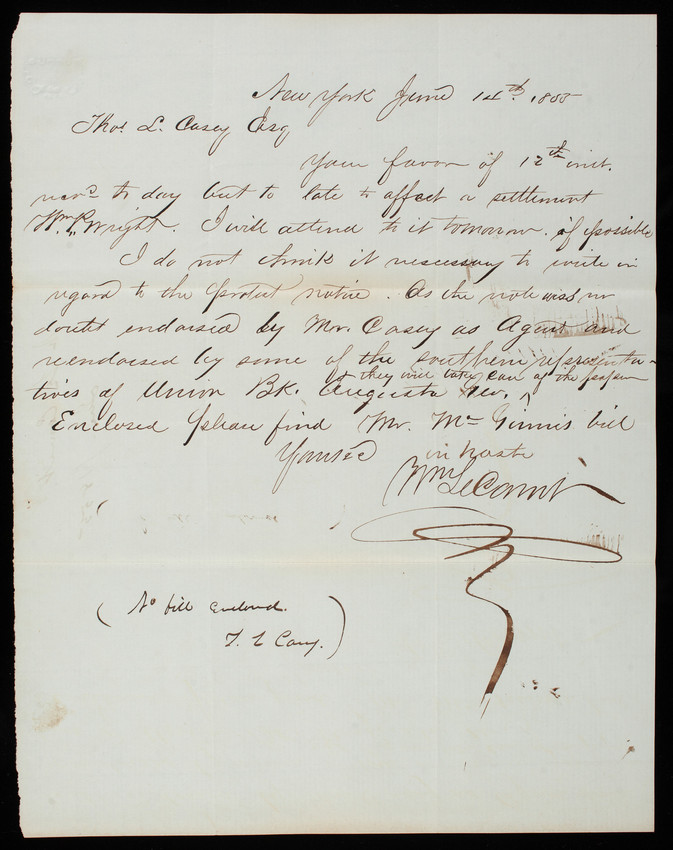 New York June 14th. 1855
Thos. L. Casey Esq
Your favor of 12th inst.
recd to day but to late to affect a settlement
Wm. P. Wright. I will attend to it tomorrow. if possible
I do not think it necessary to write in
regard to the protest notice. As the note will no
doubt endorsed by Mr. Casey as Agent and
reendorsed by some of the southern representa-
tives of Union Bk. Augusta Geo. they will take care of the paper
Enclosed please find Mr. McGinnis bill
Yours &c in haste
Wm LeCount
(No bill enclosed.
T. L. Casey.)